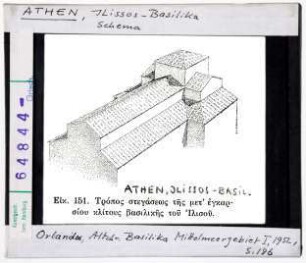 ATHEN, Ilissos-Basilika
Schema
64844
ATHEN, ILISSOS-BASIL.
Εἰκ. 151. Τρόπος στεγάσεως τῆς μετ' ἐγκαρ-
σίου κλίτους βασιλικῆς τοῦ Ἰλισοῦ.
Orlandos, Altchr. Basilika Mittelmeergebiet I, 1952,
S. 196